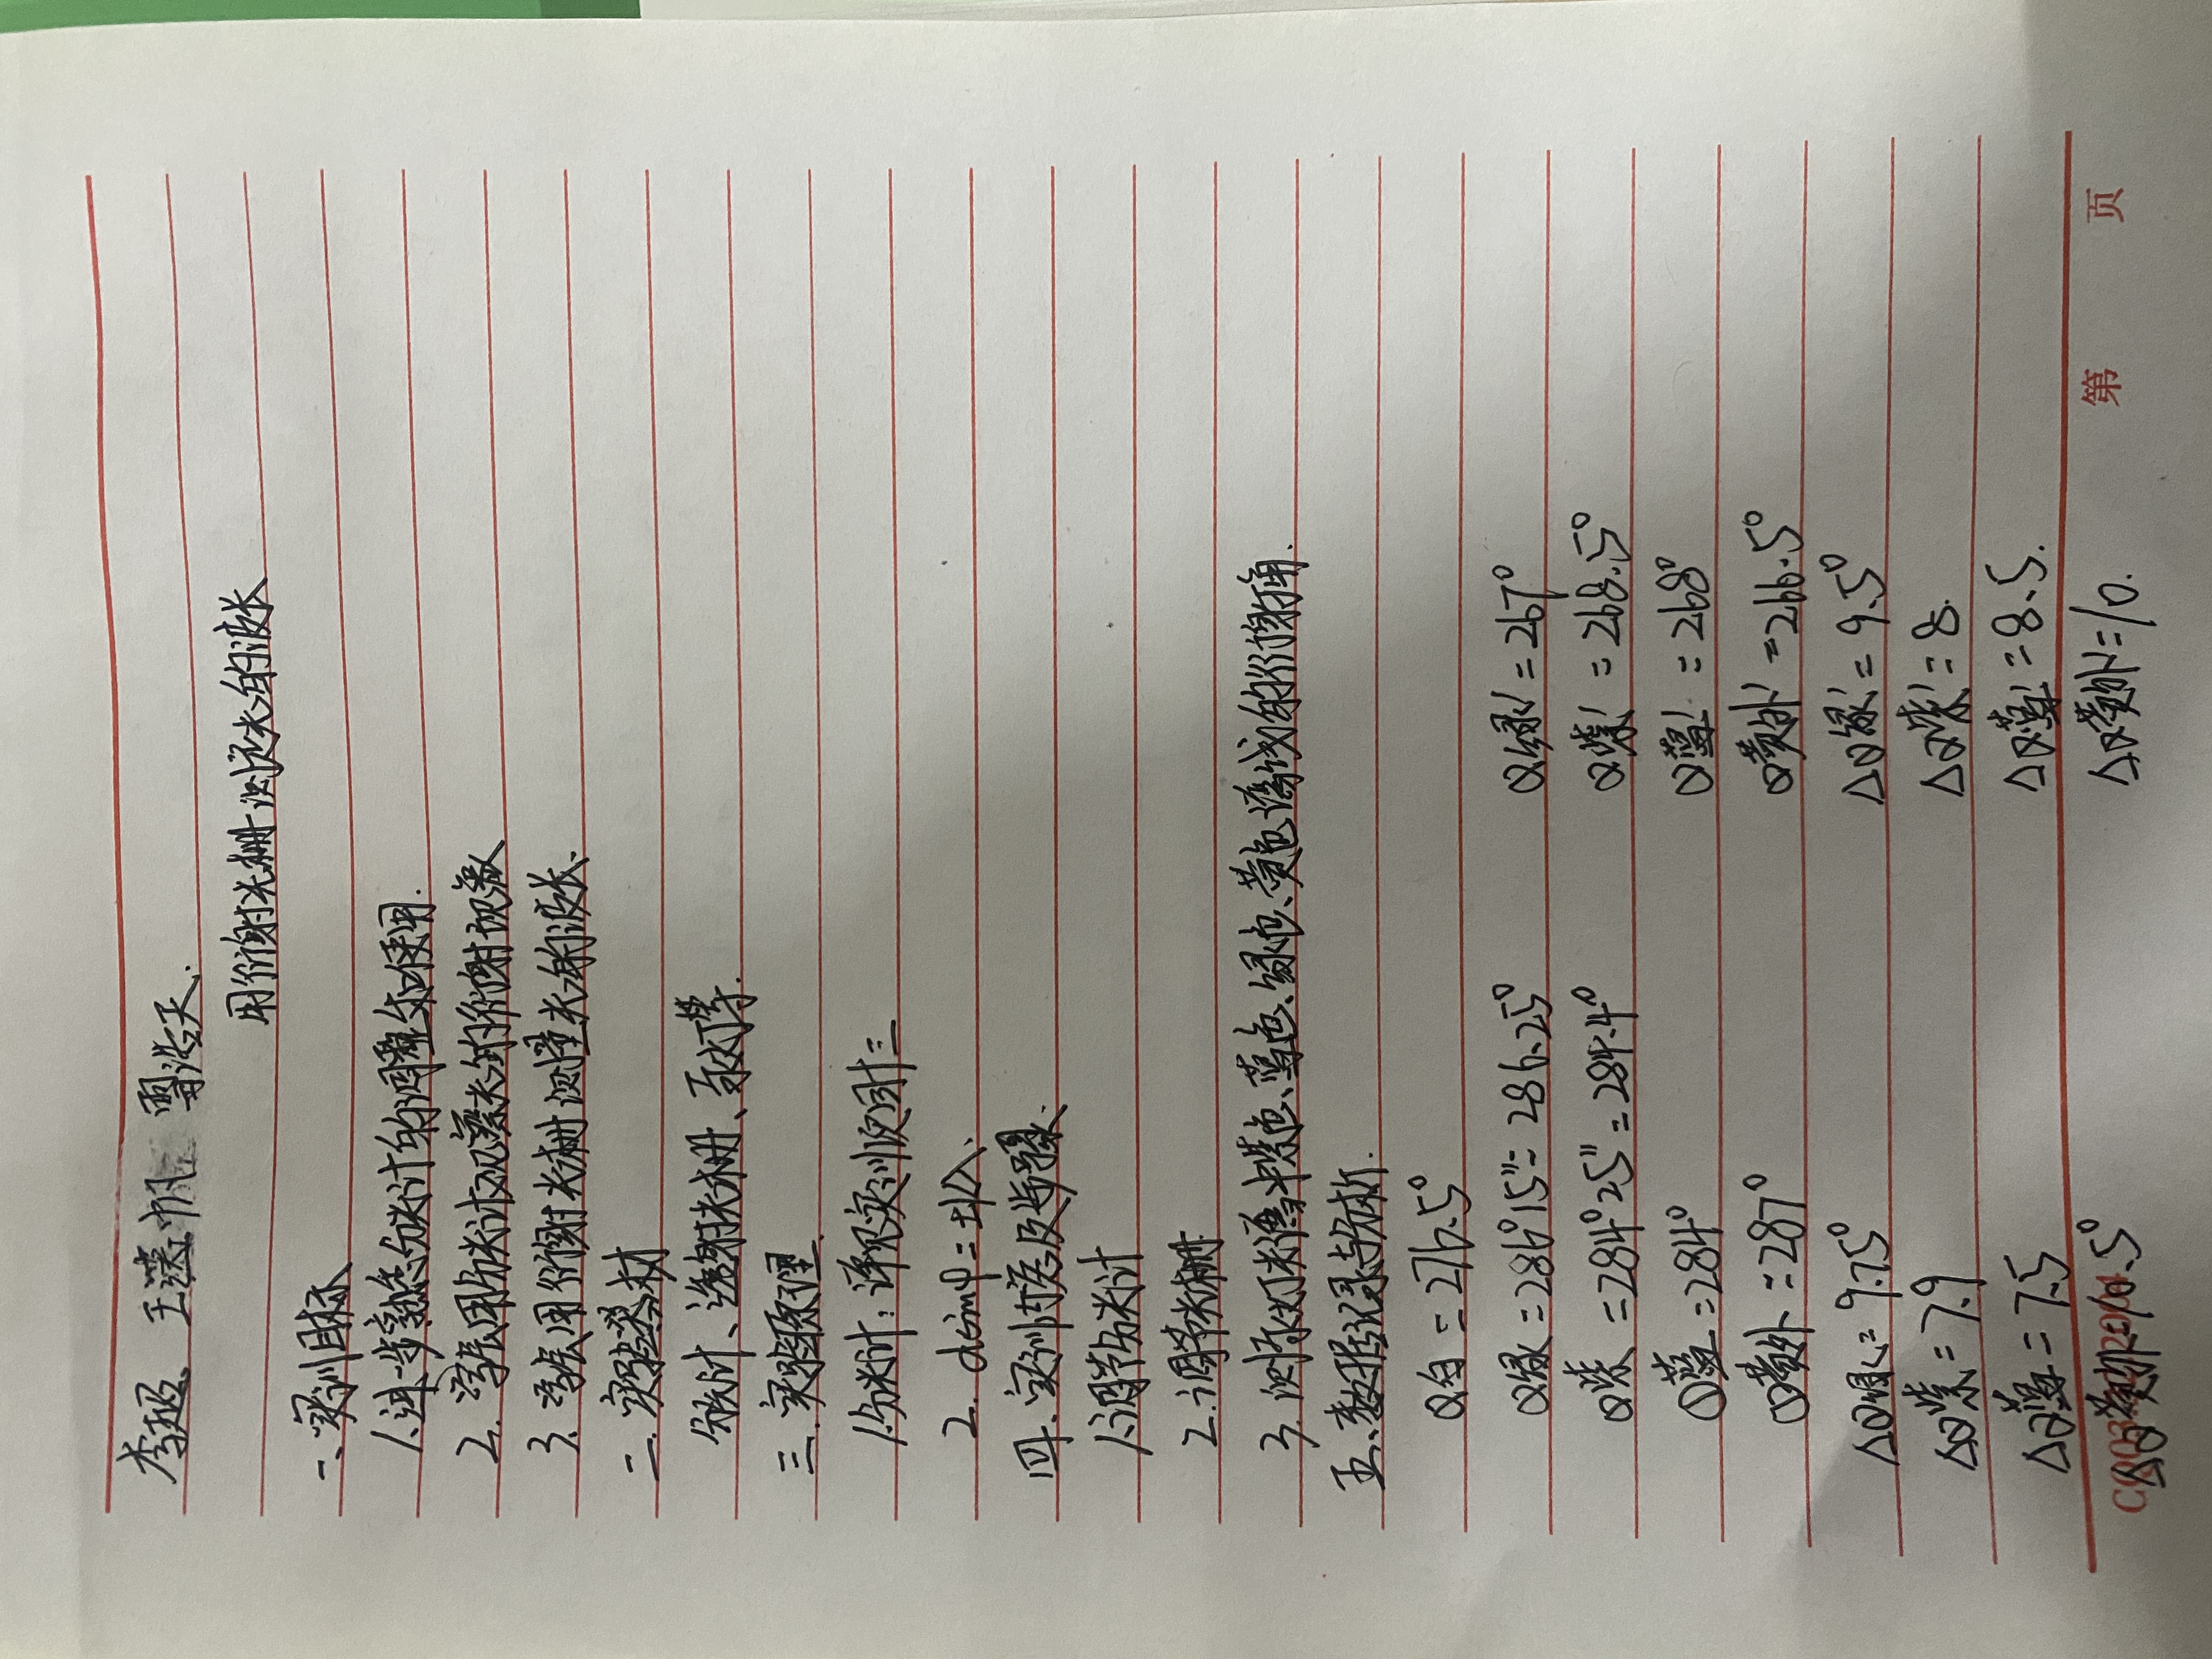 李超、王 帆 雷浩天.
用衍射光栅测定光的波长
一、实训目标
1.进一步熟悉分光计的调整和使用.
2.学会用分光计观察光的衍射现象
3.学会用衍射光栅测量光的波长.
二.实验器材
分光计、透射光栅、汞灯等.
三.实验原理.
1.分光计:详见实训项目十三
2. dsinφ=±kλ.
四.实训内容及步骤.
1.调节分光计
2.调节光栅
3.测汞灯光谱中紫色、蓝色、绿色、黄色谱线的衍射角.
五、数据记录与分析.
Q白=276.5°
Q绿=286°15"=286.25° Q绿'=267°
Q紫=284°25"=284.4° Q紫'=268.5°
Q蓝=284° Q蓝'=268°
Q黄外=287° Q黄外'=266.5°
ΔQ绿=9.75° ΔQ绿'=9.5°
ΔQ紫=7.9 ΔQ紫'=8.
ΔQ蓝=7.5 ΔQ蓝'=8.5.
ΔQ黄外=10.5° ΔQ黄外'=10.
第 页